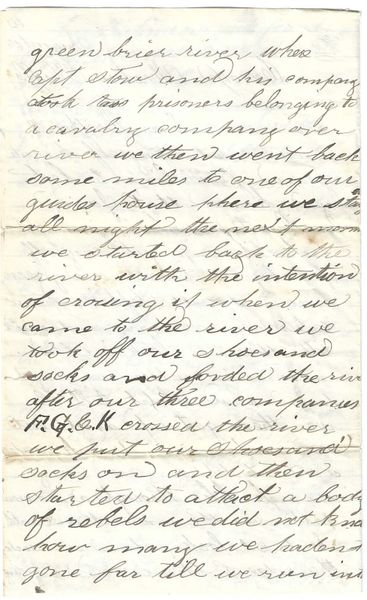 green brier river where
Capt Stow and his company
took two prisoners belonging to
a cavalry company over
river we then went back
some miles to one of our
guides house where we stay
all night the next morn
we started back to the
river with the intention
of crosing it when we
came to the river we
took off our shoes and
socks and forded the riv
after our three companies
F.G.E.K crossed the river
we put our shoes and
socks on and then
started to attact a body
of rebels we did not kno
how many we haden
gone far till we run in